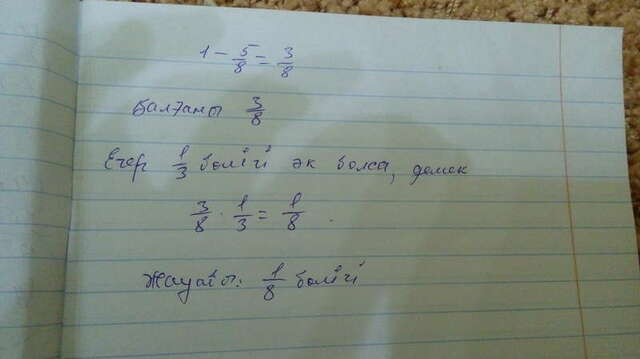 1 - 5/8 = 3/8
Қалғаны 3/8
Егер 1/3 бөлігі ақ болса, демек
3/8 · 1/3 = 1/8.
Жауабы: 1/8 бөлігі